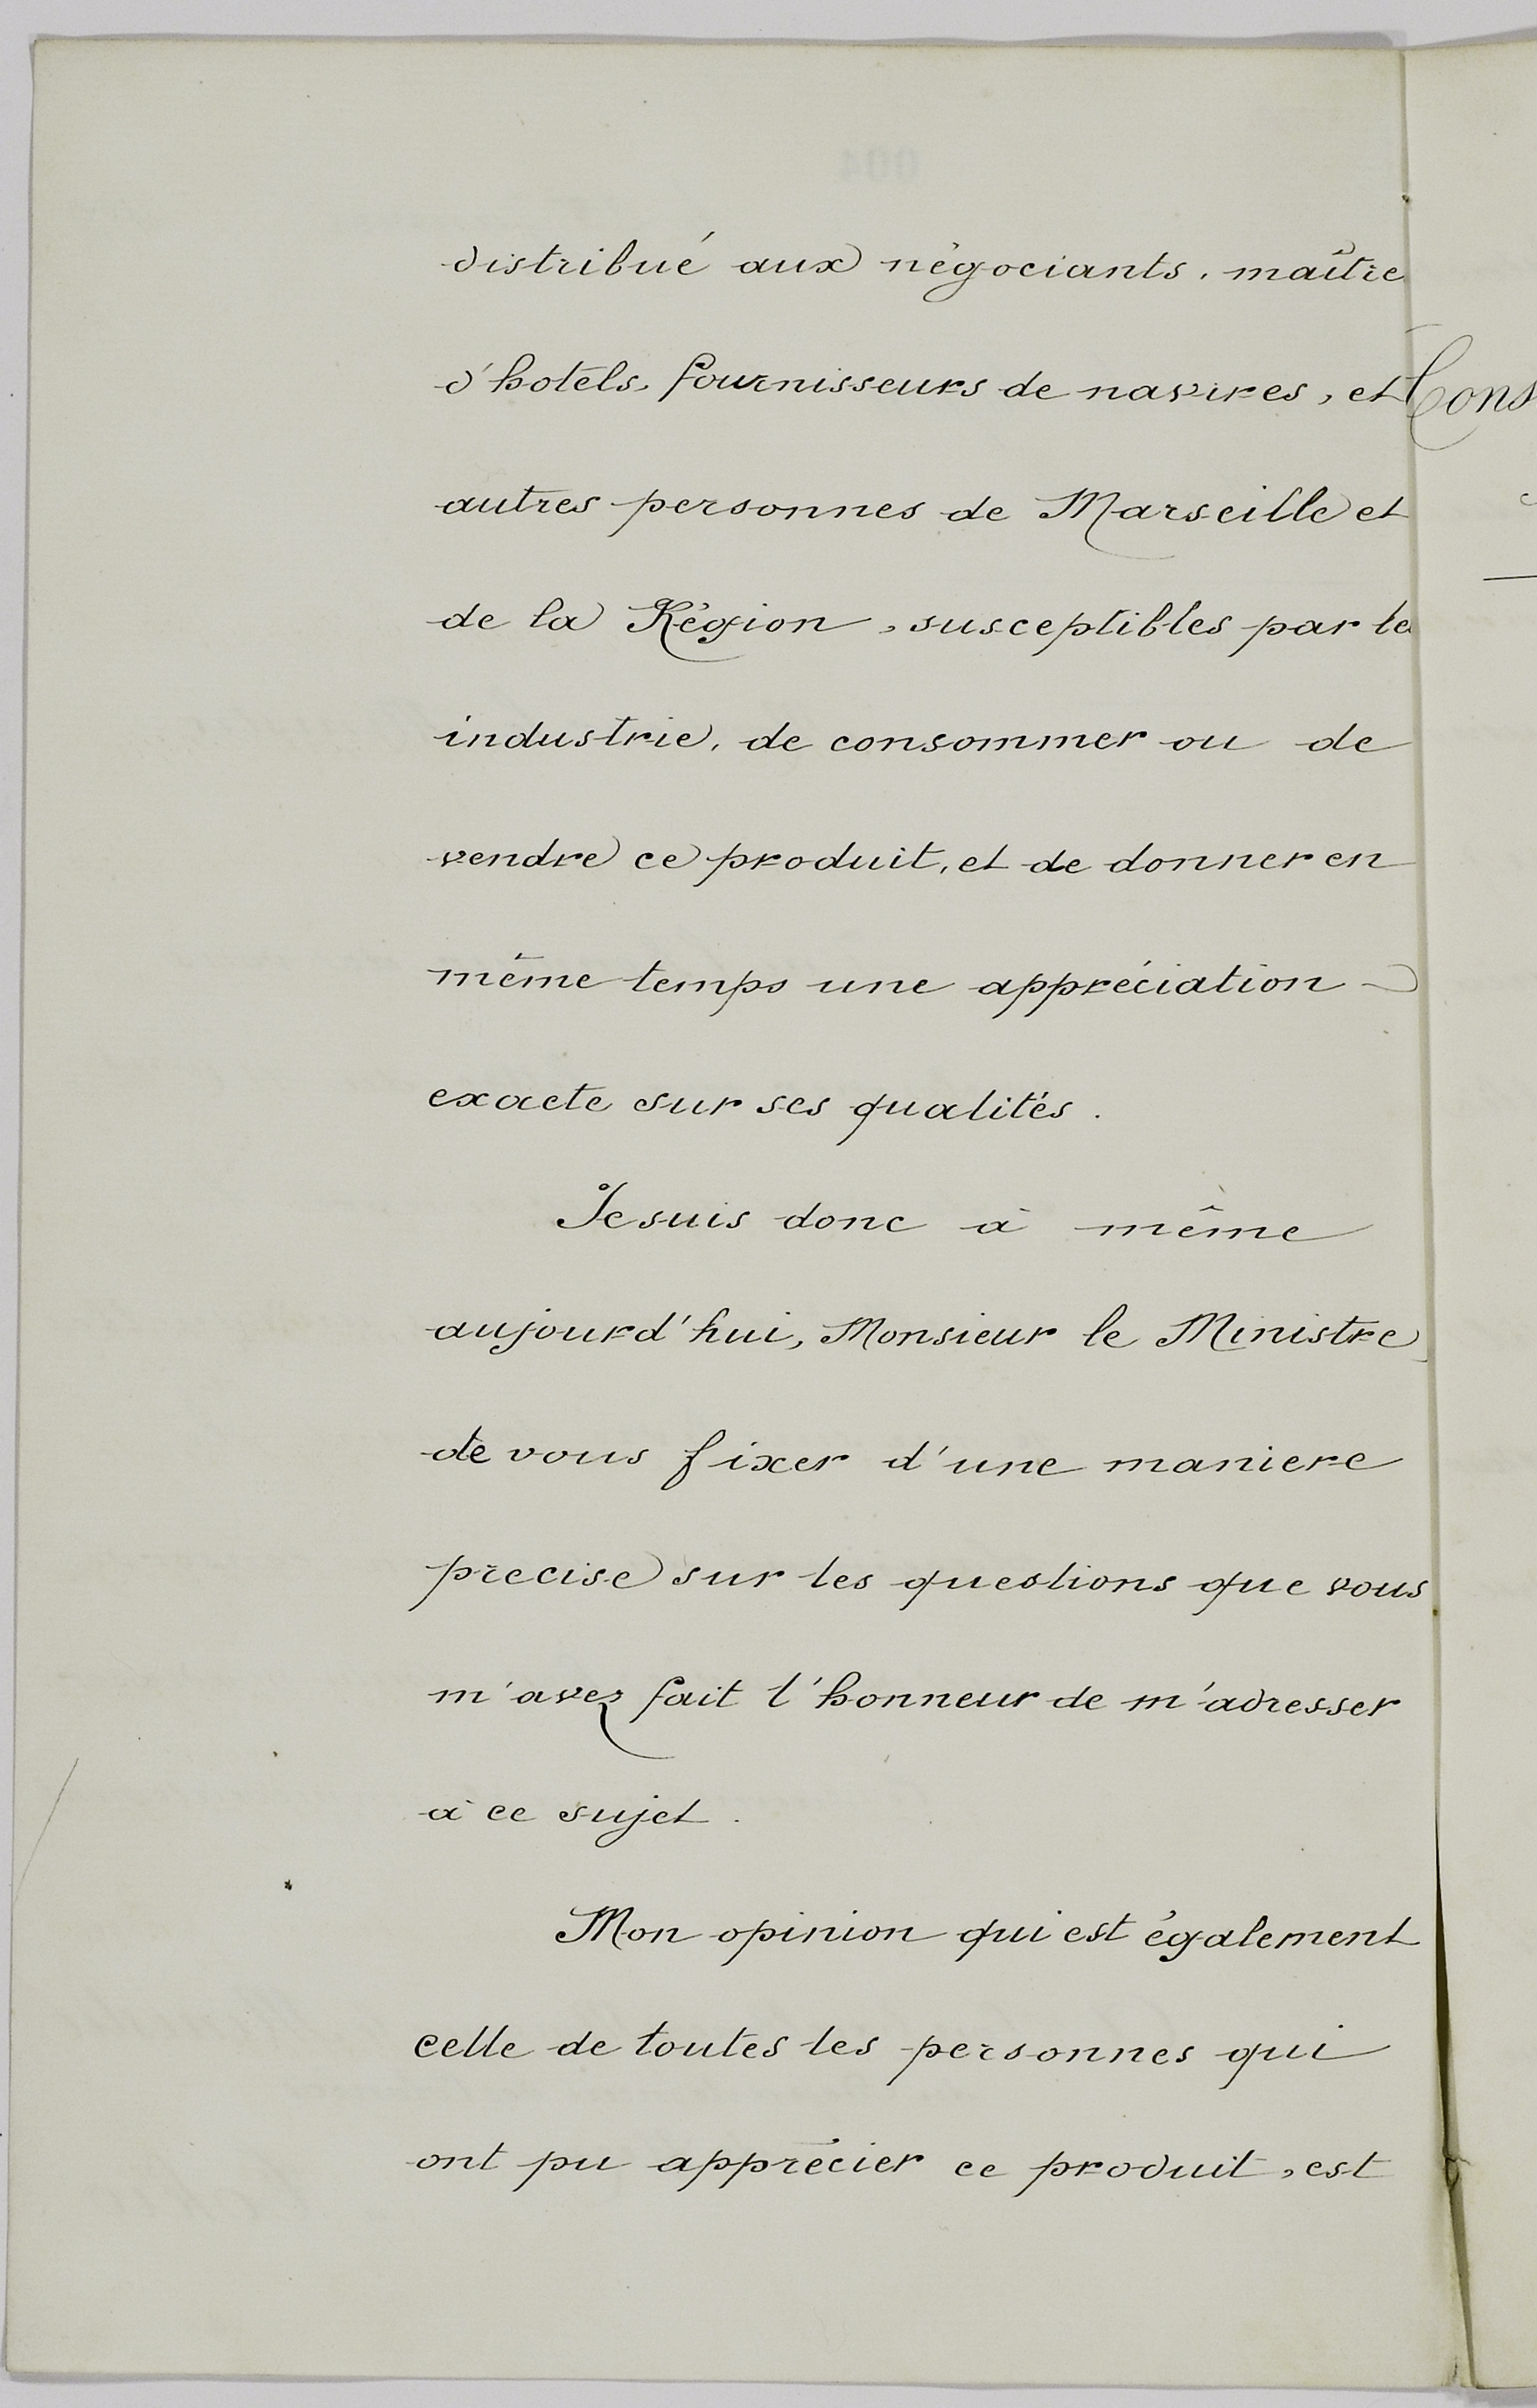 distribué aux négociants, maître
d'hotels, fournisseurs de navires, et
autres personnes de Marseille et
de la Région, susceptibles par le
industrie, de consommer ou de
vendre ce produit, et de donner en
même temps une appréciation
exacte sur ses qualités.
Je suis donc à même
aujourd'hui, Monsieur le Ministre,
de vous fixer d'une maniere
precise sur les questions que vous
m'avez fait l'honneur de m'adresser
à ce sujet.
Mon opinion qui est également
celle de toutes les personnes qui
ont pu apprécier ce produit, est
Cons